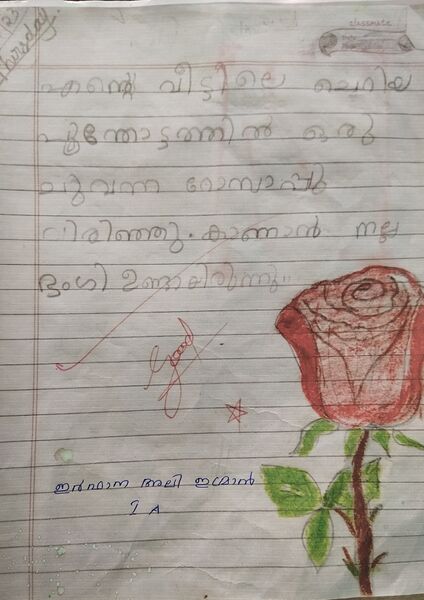 23
Thursday
classmate
എന്റെ വീട്ടിലെ ചെറിയ
പൂന്തോട്ടത്തിൽ ഒരു
ചുവന്ന റോസാപ്പൂ
വിരിഞ്ഞു. കാണാൻ നല്ല
ഭംഗി ഉണ്ടായിരുന്നു..
Good
ഇർഫാന അലി ഇമ്രാൻ
1 A